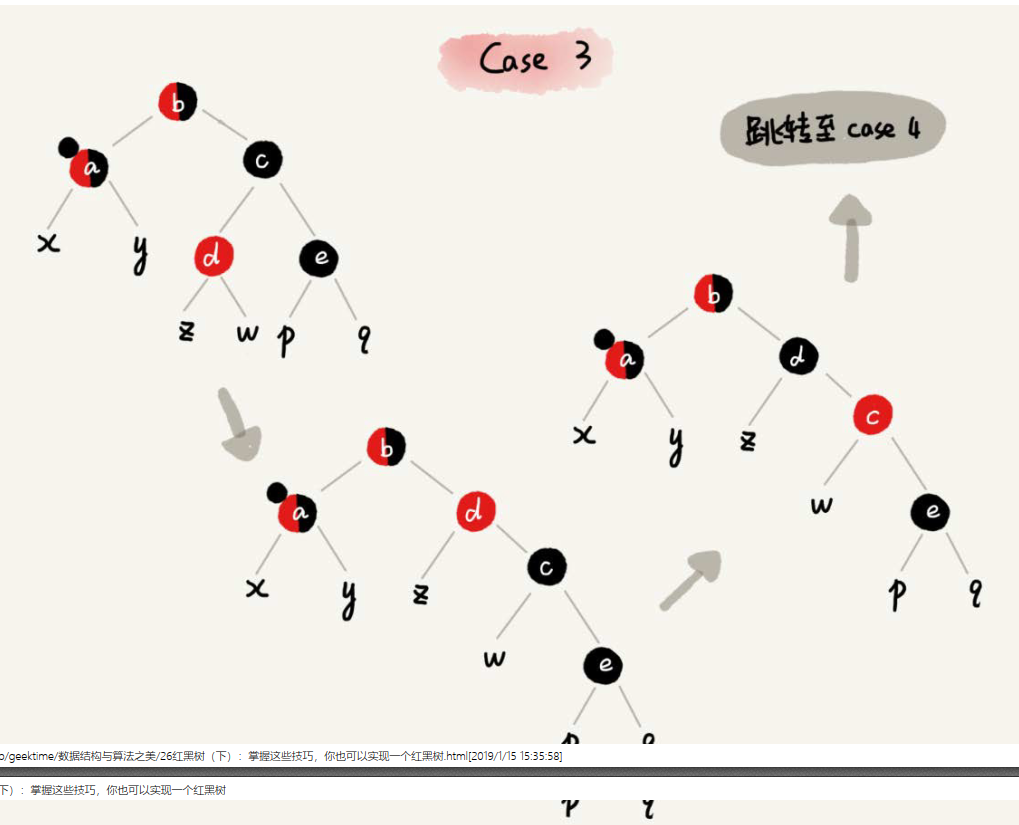 Case 3
跳转至 case 4
b
a
c
x
y
d
e
z
w
p
q
b
a
d
x
y
z
c
w
e
p
q
b
a
d
x
y
z
c
w
e
p
q
o/geektime/数据结构与算法之美/26红黑树（下）：掌握这些技巧，你也可以实现一个红黑树.html[2019/1/15 15:35:58]
下）：掌握这些技巧，你也可以实现一个红黑树
p
q